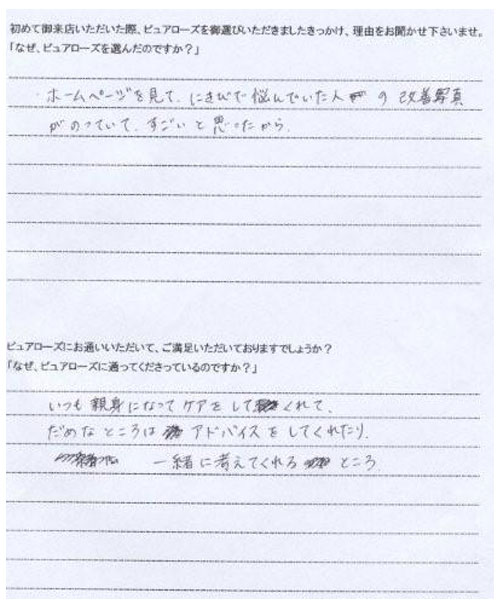 初めて御来店いただいた際、ピュアローズを御選びいただきましたきっかけ、理由をお聞かせ下さいませ。
「なぜ、ピュアローズを選んだのですか？」
・ホームページを見て、にきびで悩んでいた人の改善写真
がのっていて、すごいと思ったから。
ピュアローズにお通いいただいて、ご満足いただいておりますでしょうか？
「なぜ、ピュアローズに通ってくださっているのですか？」
いつも親身になってケアをしてくれて、
だめなところはアドバイスをしてくれたり、
一緒に考えてくれるところ。